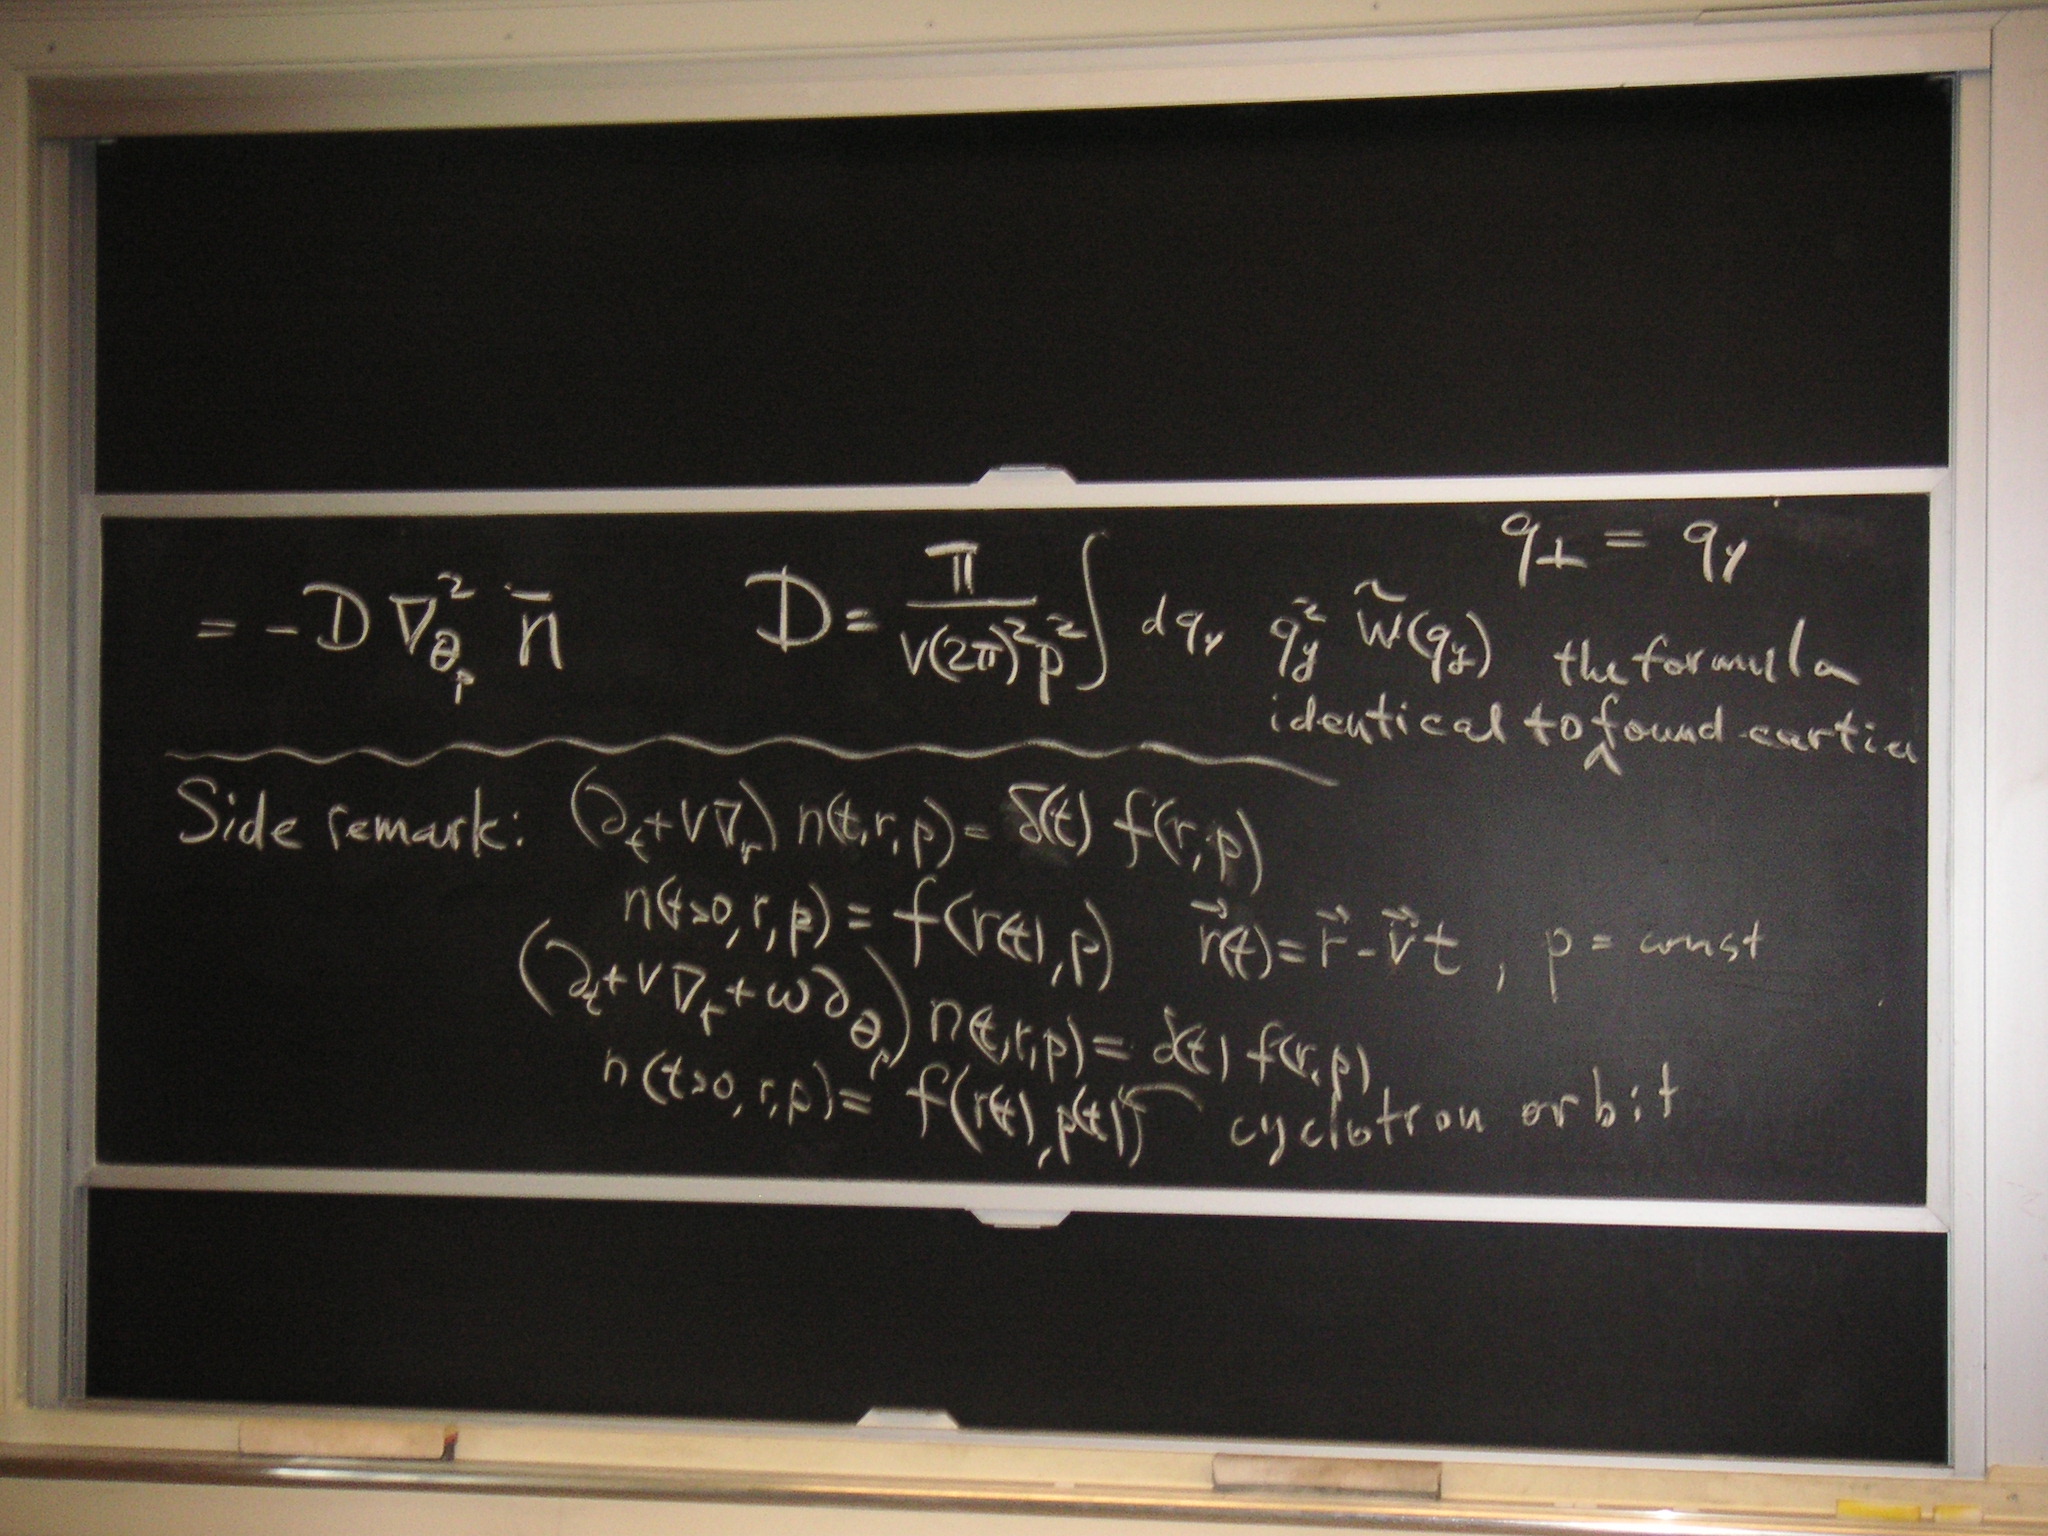 q⊥ = q_y
= -D ∇²_θ_p n̄ D = π / v(2π)²p² ∫ dq_y q_y² W̃(q_y) the formula
identical to ^ found
Side remark: (∂_t + v∇_r) n(t,r,p) = δ(t) f(r,p)
n(t>0, r, p) = f(r(t), p) r⃗(t) = r⃗ - v⃗t , p = const
(∂_t + v∇_r + ω∂_θ_p) n(t,r,p) = δ(t) f(r,p)
n(t>0, r, p) = f(r(t), p(t)) cyclotron orbit